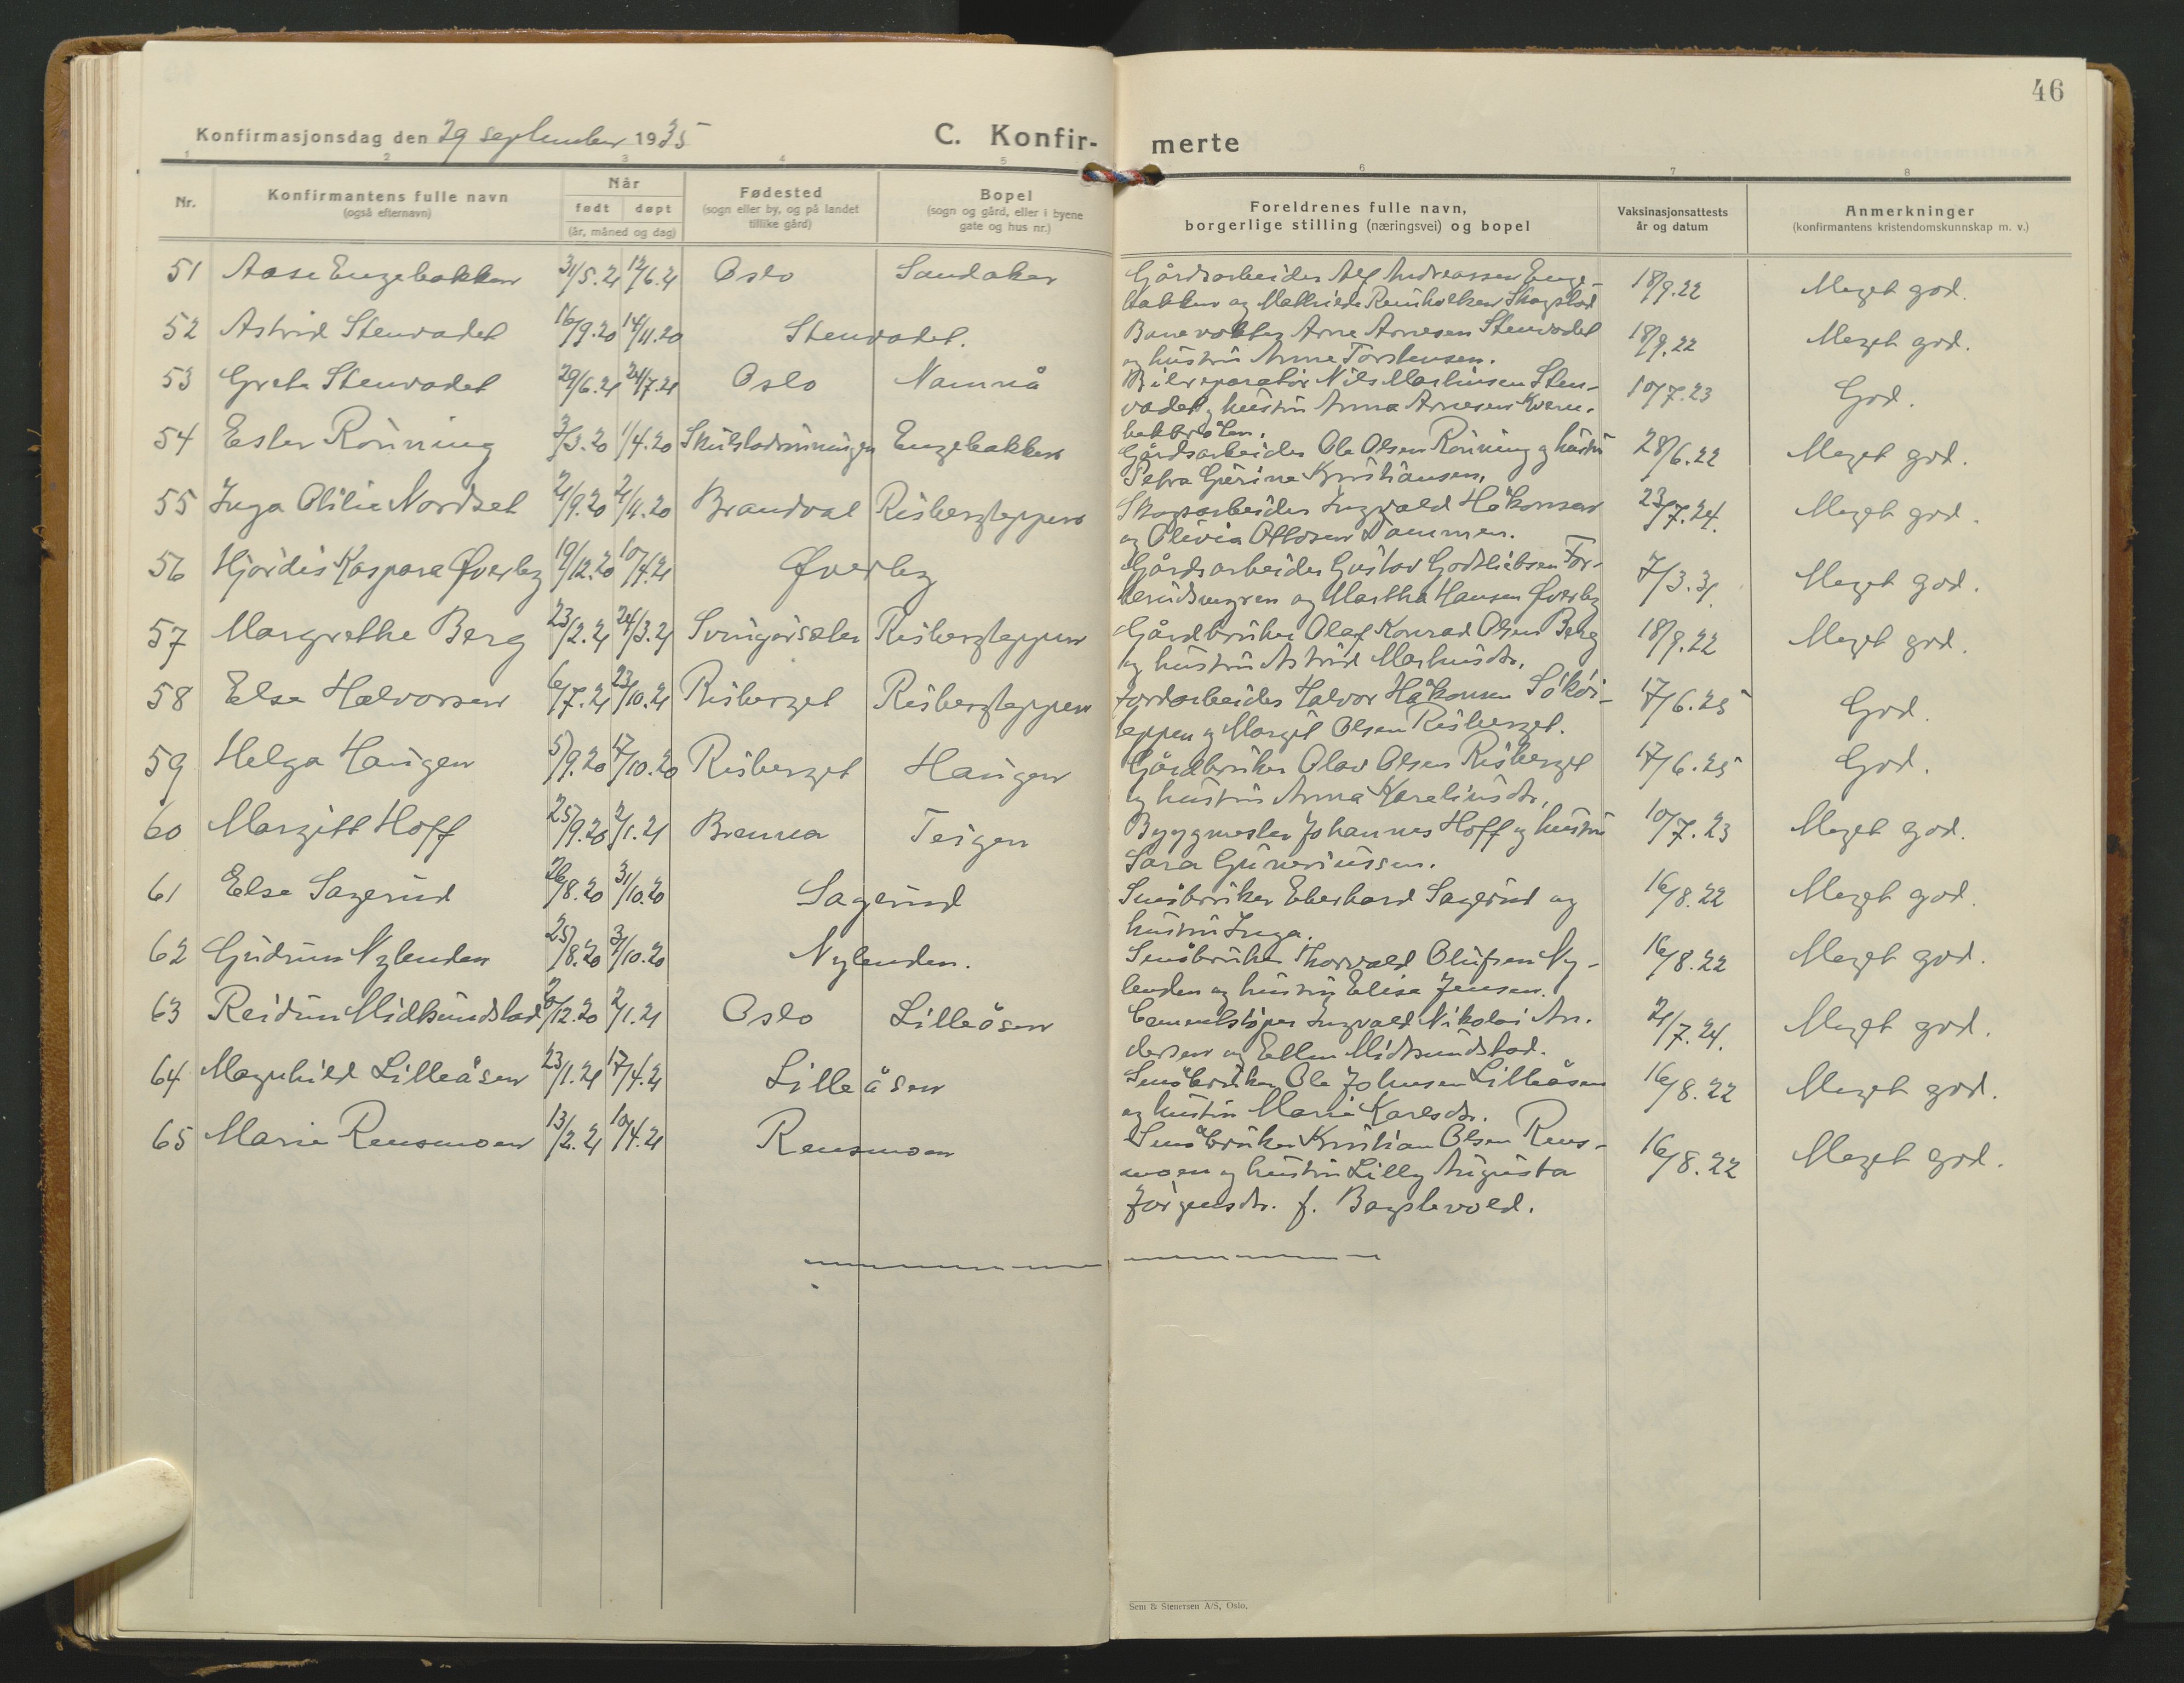 46
Konfirmasjonsdag den 29 september 1935
C. Konfir-
merte
1 2 3 4 5 6 7 8
Nr.
Konfirmantens fulle navn
(også efternavn)
Når
født døpt
(år, måned og dag)
Fødested
(sogn eller by, og på landet
tillike gård)
Bopel
(sogn og gård, eller i byene
gate og hus nr.)
Foreldrenes fulle navn,
borgerlige stilling (næringsvei) og bopel
Vaksinasjonsattests
år og datum
Anmerkninger
(konfirmantens kristendomskunnskap m. v.)
51 Aase Engebakken 31/5.21 12/6.21 Oslo Sandaker Gårdsarbeider Alf Andreassen Enge- 18/9.22 Meget god.
bakken og Mathilde Reinholtsen Skogstad
52 Astrid Stenvadet 16/9.20 14/11.20 Stenvadet. Banevokter Arne Arnesen Stenvadet 18/9.22 Meget god.
og hustru Anne Torstensen.
53 Grete Stenvadet 29/6.21 24/7.21 Oslo Namnå Bilreparatør Nils Martinsen Sten- 10/7.23 God.
vadet og hustru Anna Arnesen Kvern-
54 Ester Rønning 3/3.20 1/4.20 Skulstadrønningen Engebakken Gårdsarbeider Ole Olsen Rønning og hustru 28/6.22 Meget god.
Petra Gurine Kristiansen.
55 Inga Otilie Nordset 21/9.20 21/11.20 Brandval Risbergseppen Skogsarbeider Ingvald Håkonsen 23/7.24. Meget god.
og Olivia Ottosen Dammen.
56 Hjørdis Kaspara Øverby 19/12.20 10/4.21 Øverby Gårdsarbeider Gustav Godtliebsen Tor-
berudsmyren og Martha Hansen Øverby 7/3.31. Meget god.
57 Margrethe Berg 23/2.21 24/3.21 Svingørsæter Risbergseppen Gårdbruker Olaf Konrad Olsen Berg 18/9.22 Meget god.
og hustru Astrid Marhusdtr.
58 Else Halvorsen 6/7.21 23/10.21 Risberget Risbergseppen Jordarbeider Halvor Håkonsen Søkøi- 17/6.25 God.
eppen og Margit Olsen Risberget.
59 Helga Haugen 5/9.20 17/10.20 Risberget Haugen Gårdbruker Olav Olsen Risberget 17/6.25 God.
og hustru Anna Kareliusdtr.
60 Margitt Hoff 25/9.20 2/1.21 Brenna Teigen Byggmester Johannes Hoff og hustru 10/7.23 Meget god.
Sara Guneriussen.
61 Else Sagerud 26/8.20 31/10.20 Sagerud Småbruker Eberhard Sagerud og 16/8.22 Meget god.
hustru Inga.
62 Gudrun Nylenden 25/8.20 31/10.20 Nylenden. Småbruker Thorvald Olufsen Ny- 16/8.22 Meget god.
lenden og hustru Elise Jensen.
63 Reidun Midtsundstad 20/12.20 2/1.21 Oslo Lilleåsen Cementstøper Ingvald Nikolai An- 21/7.24. Meget god.
dersen og Ellen Midtsundstad.
64 Magnhild Lilleåsen 23/1.21 17/4.21 Lilleåsen Småbruker Ole Johnsen Lilleåsen 16/8.22 Meget god.
og hustru Marie Karlsdtr.
65 Marie Rensmoen 13/2.21 10/4.21 Rensmoen Småbruker Kristian Olsen Rens- 16/8.22 Meget god.
moen og hustru Lilly Augusta
Jørgensdtr. f. Bagstevold.
Sem & Stenersen A/S, Oslo.